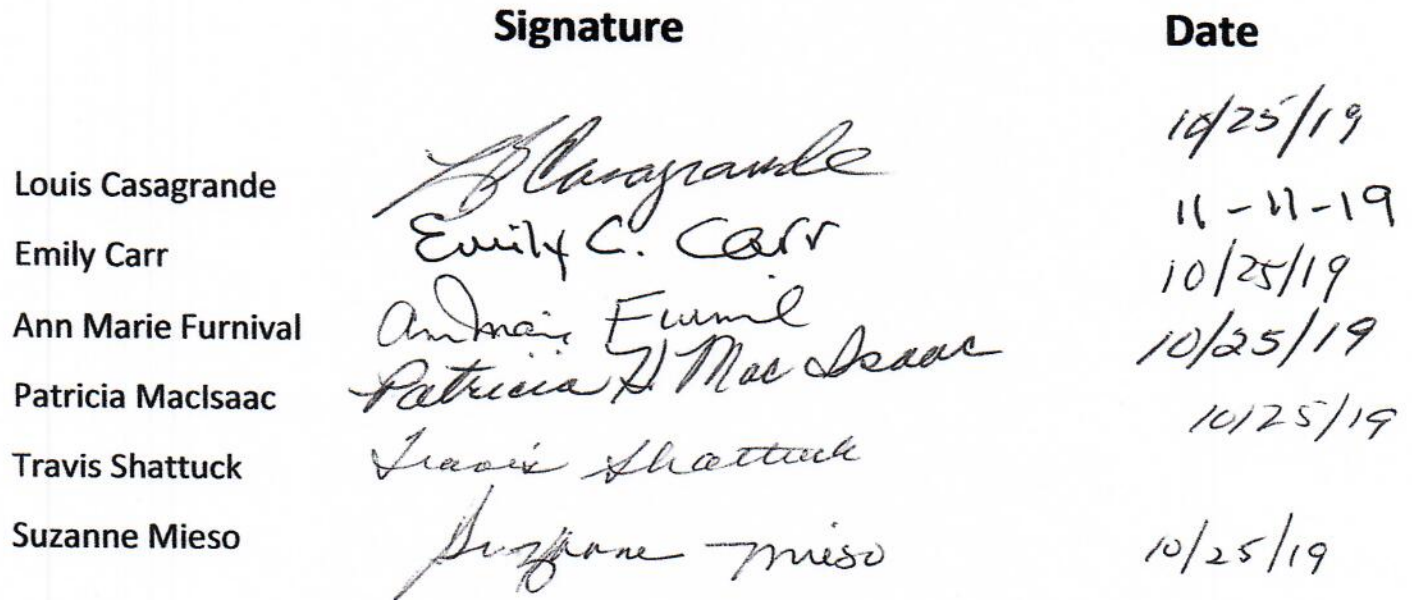 Signature Date
Louis Casagrande L B Casagrande 10/25/19
Emily Carr Emily C. Carr 11-11-19
Ann Marie Furnival Ann Marie Furnival 10/25/19
Patricia MacIsaac Patricia H. MacIsaac 10/25/19
Travis Shattuck Travis Shattuck 10/25/19
Suzanne Mieso Suzanne Mieso 10/25/19